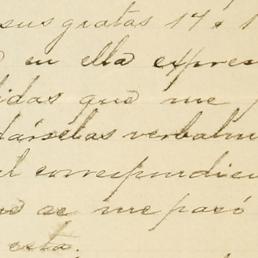 sus gratas 14 y 1
en ella expres
idas que me
dárselas verbalm
al correspondien
que se me pasó
esta.